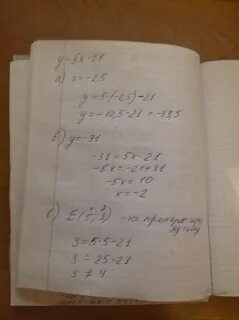 y=5x-21
а) x=-2,5
y=5·(-2,5)-21
y=-12,5-21=-33,5
б) y=-31
-31=5x-21
-5x=-21+31
-5x=10
x=-2
в) E(5;3) -не проходит
3=5·5-21
3=25-21
3≠4